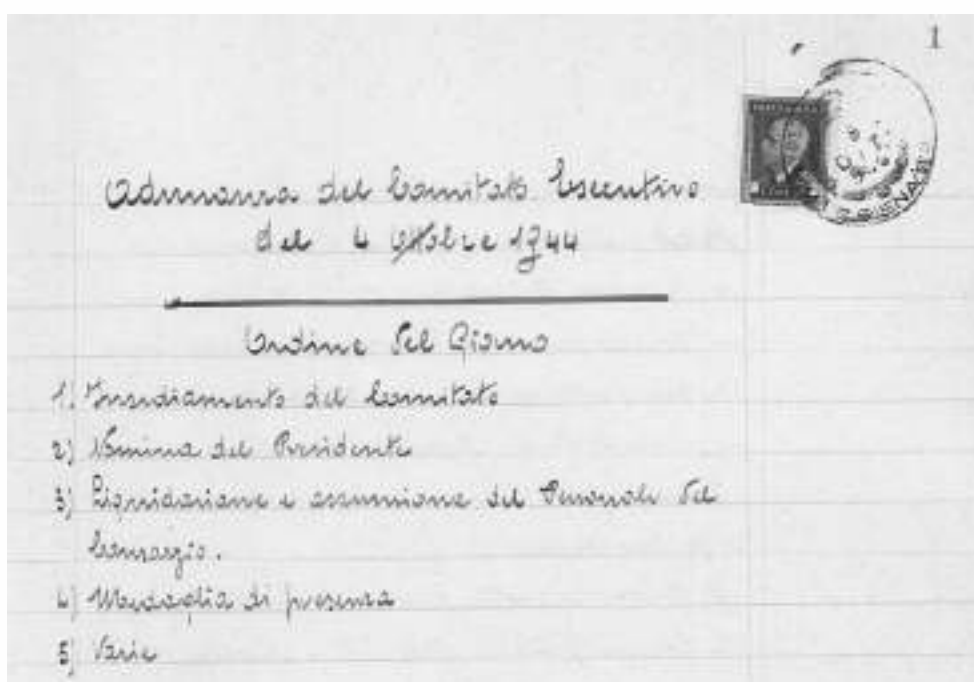 1
Adunanza del Comitato Esecutivo
del 4 Ottobre 1944
Ordine del Giorno
1) Insediamento del Comitato
2) Nomina del Presidente
3) Liquidazione e assunzione del Personale del
Consorzio.
4) Medaglia di presenza
5) Varie
SIENA